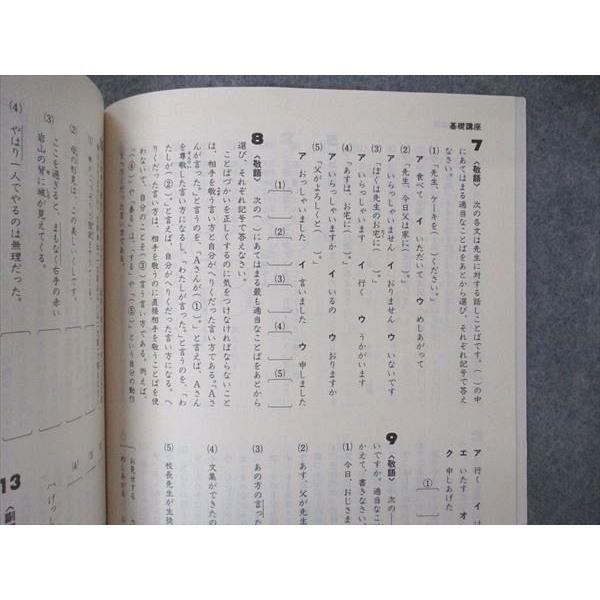 基礎講座
7 〈敬語〉 次の各文は先生に対する話しことばです。( )の中
にあてはまる適当なことばをあとから選び、それぞれ記号で答え
なさい。
(1) 「先生、ケーキを( )ください。」
ア 食べて イ いただいて ウ めしあがって
(2) 「先生、今日父は家に( )。」
ア いらっしゃいません イ おりません ウ いないです
(3) 「ぼくは先生のお宅に( )。」
ア いらっしゃいます イ 行く ウ うかがいます
(4) 「あすは、お宅に( )。」
ア いらっしゃいますか イ いるの ウ おりますか
(5) 「父がよろしくと( )。」
ア おっしゃいました イ 言いました ウ 申しました
(1)
(2)
(3)
(4)
(5)
8 〈敬語〉 次の( )にあてはまる最も適当なことばをあとから
選び、それぞれ記号で答えなさい。
ことばづかいを正しくするのに気をつけなければならないこと
は、相手を敬う言い方と自分がへりくだった言い方である。「Aさ
んが言った。」と言うのを、「Aさんが(①)。」と言えば、Aさん
を尊敬した言い方になるし、「わたしが言った。」と言うのを、「わ
たしが(②)。」と言えば、自分がへりくだった言い方になる。へ
りくだった言い方は、相手を敬うのに直接相手を敬うことばを使
わないで、自分のことを(③)言う言い方である。例えば、
「(④)」や「参る」は、「する」や「(⑤)」という自分の動作
ア 行く イ
エ いたす オ
ク 申しあげた
(1)
9 〈敬語〉 次の
いですか。適当なこ
かえて、書きなさい。
(1) 今日、おじさま
(2) あす、父が先生
(3) あの方の言っ
(4) 文集ができたの
(5) 校長先生が生徒
お見せする
めしあがる
(2)
(3) ここを過ぎると、まもなく右手の赤い
岩山の背に城が見えてくる。
(4) やはり一人でやるのは無理だった。
13